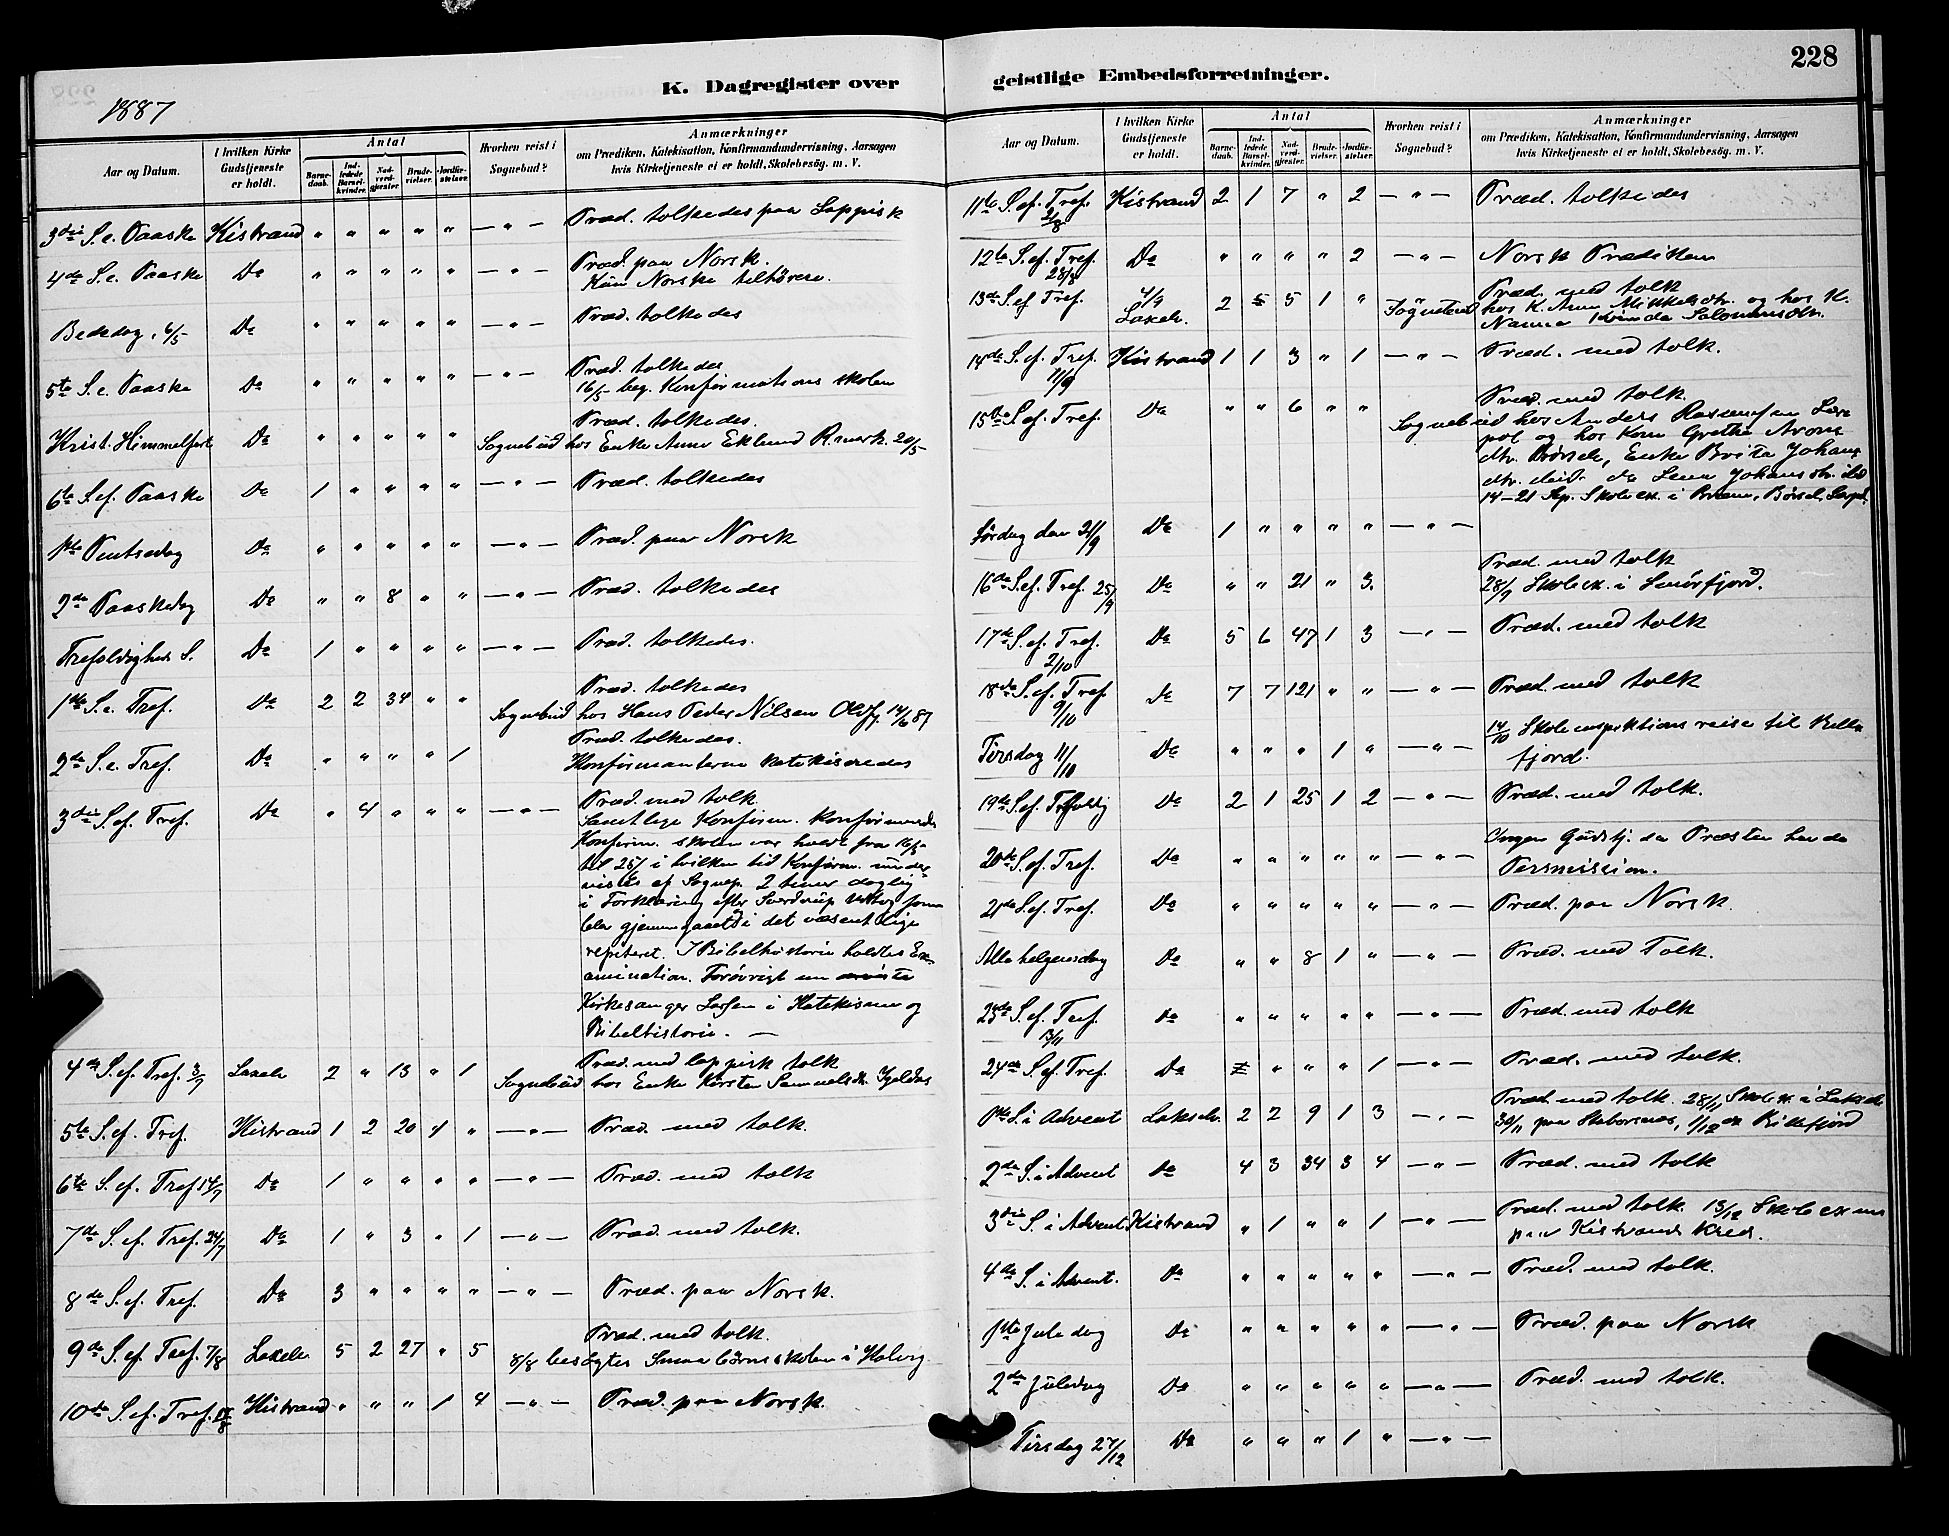 228
K. Dagregister over geistlige Embedsforretninger.
1887
Aar og Datum.
I hvilken Kirke Gudstjeneste er holdt.
Antal
Barnedaab.
Indledede Barselkvinder.
Nadverdgjester.
Brudevielser.
Jordfæstelser.
Hvorhen reist i Sognebud?
Anmærkninger
om Prædiken, Katekisation, Konfirmandundervisning, Aarsagen
hvis Kirketjeneste ei er holdt, Skolebesøg. m. V.
3die S. e. Paaske Kistrand " " " " " — " — Præd. tolkedes paa Lappisk
4de S. e. Paaske Do " " " " " — " — Præd. paa Norsk.
Kun Norske tilhørere.
Bededag, 6/5 Do " " " " " — " — Præd. tolkedes
5te S. e. Paaske Do " " " " " — " — Præd. tolkedes
16/5 beg. Konfirmationsskolen
Præd. tolkedes.
Krist. Himmelfart Do " " " " " Sognebud hos Enke Anne Eklund 20/5
6te S. ef. Paaske Do 1 " " " " — " — Præd. tolkedes
1ste Pintsedag Do " " " " " — " — Præd. paa Norsk
2de Paaskedag Do " " 8 " " — " — Præd. tolkedes
Trefoldigheds S. Do 1 " " " " — " — Præd. tolkedes.
Præd. tolkedes
1ste S. e. Tref. Do 2 2 34 " " Sognebud hos Hans Peder Nilsen 14/6 87
Præd. tolkedes.
2de S. e. Tref. Do " " " " 1 Konfirmanterne katekiseredes
3die S. ef. Tref. Do " 4 " " " — " — Præd. med tolk
Samtlige Konfirm. konfirmerede
Konfirm. skolen var holdt fra 16/5
til 25/ i hvilken tid Konfirm. under-
vistes af Sognep. 2 timer daglig
i Forklaring efter Sverdrup som
blev gjennemgaaet i det væsentlige
repeteret. I Bibelhistorie holdtes Ex-
amination. Forøvrigt
Kirkesanger Larsen i Katekisme og
Bibelhistorie. —
Præd. med lappisk tolk
4de S. ef. Tref. 3/7 Laxelv 2 " 13 " 1 Sognebud hos Enke Kirsten Samuelsdtr.
5te S. ef. Tref. Kistrand 1 2 20 4 " — " — Præd. med tolk
6te S. ef. Tref 17/7 Do 1 " " " " — " — Præd. med tolk
7de S. ef. Tref. 24/7 Do 1 " 3 " 1 — " — Præd. med tolk.
8de S. ef. Tref. Do 3 " " " " — " — Præd. paa Norsk.
Præd. med tolk.
9de S. ef. Tref. 7/8 Laxelv 5 2 27 " 5 8/8 besøgtes Smaabørnsskolen i
10de S. ef. Tref. Kistrand " " " 1 4 — " — Præd. paa Norsk.
Aar og Datum.
I hvilken Kirke Gudstjeneste er holdt.
Antal
Barnedaab.
Indledede Barselkvinder.
Nadverdgjester.
Brudevielser.
Jordfæstelser.
Hvorhen reist i Sognebud?
Anmærkninger
om Prædiken, Katekisation, Konfirmandundervisning, Aarsagen
hvis Kirketjeneste ei er holdt, Skolebesøg. m. V.
11te S. ef. Tref. Kistrand 2 1 7 " 2 — " — Præd. tolkedes
12te S. ef. Tref. 28/8 Do " " " " 2 — " — Norsk Prædiken
Præd. med tolk
13de S. ef Tref. 4/9 Laxelv. 2 5 5 1 " Sognebud hos K. Anna Mikkelsdtr. og hos K.
Nanna Salomonsdtr.
14de S. ef. Tref. 11/9 Kistrand 1 1 3 " 1 — " — Præd. med tolk.
Præd. med tolk.
15de S. ef. Tref. Do " " 6 " " Sognebud hos Anders Rasmussen
og hos Kone Grethe Arons
dtr. Børselv, Enke Brita Johans
dtr. Lena Johansdtr.
14–21 Sep. Skoleex. i
Lørdag den 21/9 Do 1 " " " " — " —
Præd. med tolk
16de S. ef. Tref. 25/9 Do " " 21 " 3. 28/9 Skoleex. i Smørfjord
17de S. ef. Tref. 2/10 Do 5 6 47 1 3 — " — Præd. med tolk
18de S. ef. Tref 9/10 Do 7 7 121 " " — " — Præd. med tolk
Tirsdag 11/10 Do " " " 1 " — " — 14/10 Skoleinspektionsreise til Bille
fjord.
19de S. ef. Trefoldig Do 2 1 25 1 2 — " — Præd. med tolk.
20de S. ef. Tref. Do " " " " " — " — Ingen Gudstj. da Præsten havde
Permission.
21de S. ef. Tref. Do " " " " " — " — Præd. paa Norsk.
Allehelgensdag Do " " 8 1 " — " — Præd. med Tolk.
23de S. ef. Tref. Do " " " " " — " — Præd. med tolk
24de S. ef. Tref. Do " " " 1 — " — Præd. med tolk.
1ste S. i Advent Lakselv. 2 2 9 1 3 — " — Præd. med tolk. 28/11 Skoleex i Lakselv
30/11 paa 1/12 Billefjord
2de S. i Advent Do 4 3 34 3 4 — " — Præd. med tolk
3die S. i Advent Kistrand " 1 " " 1 — " — Præd. med tolk. 13/12 Skoleexamen
paa Kistrands Kreds.
4de S. i Advent. Do " " " " " — " — Præd. med tolk.
1ste Juledag Do " " " " " — " — Præd. paa Norsk
2de Juledag Do " " " " " — " — Præd. med tolk.
Tirsdag 27/12 Do " " " 1 " — " —